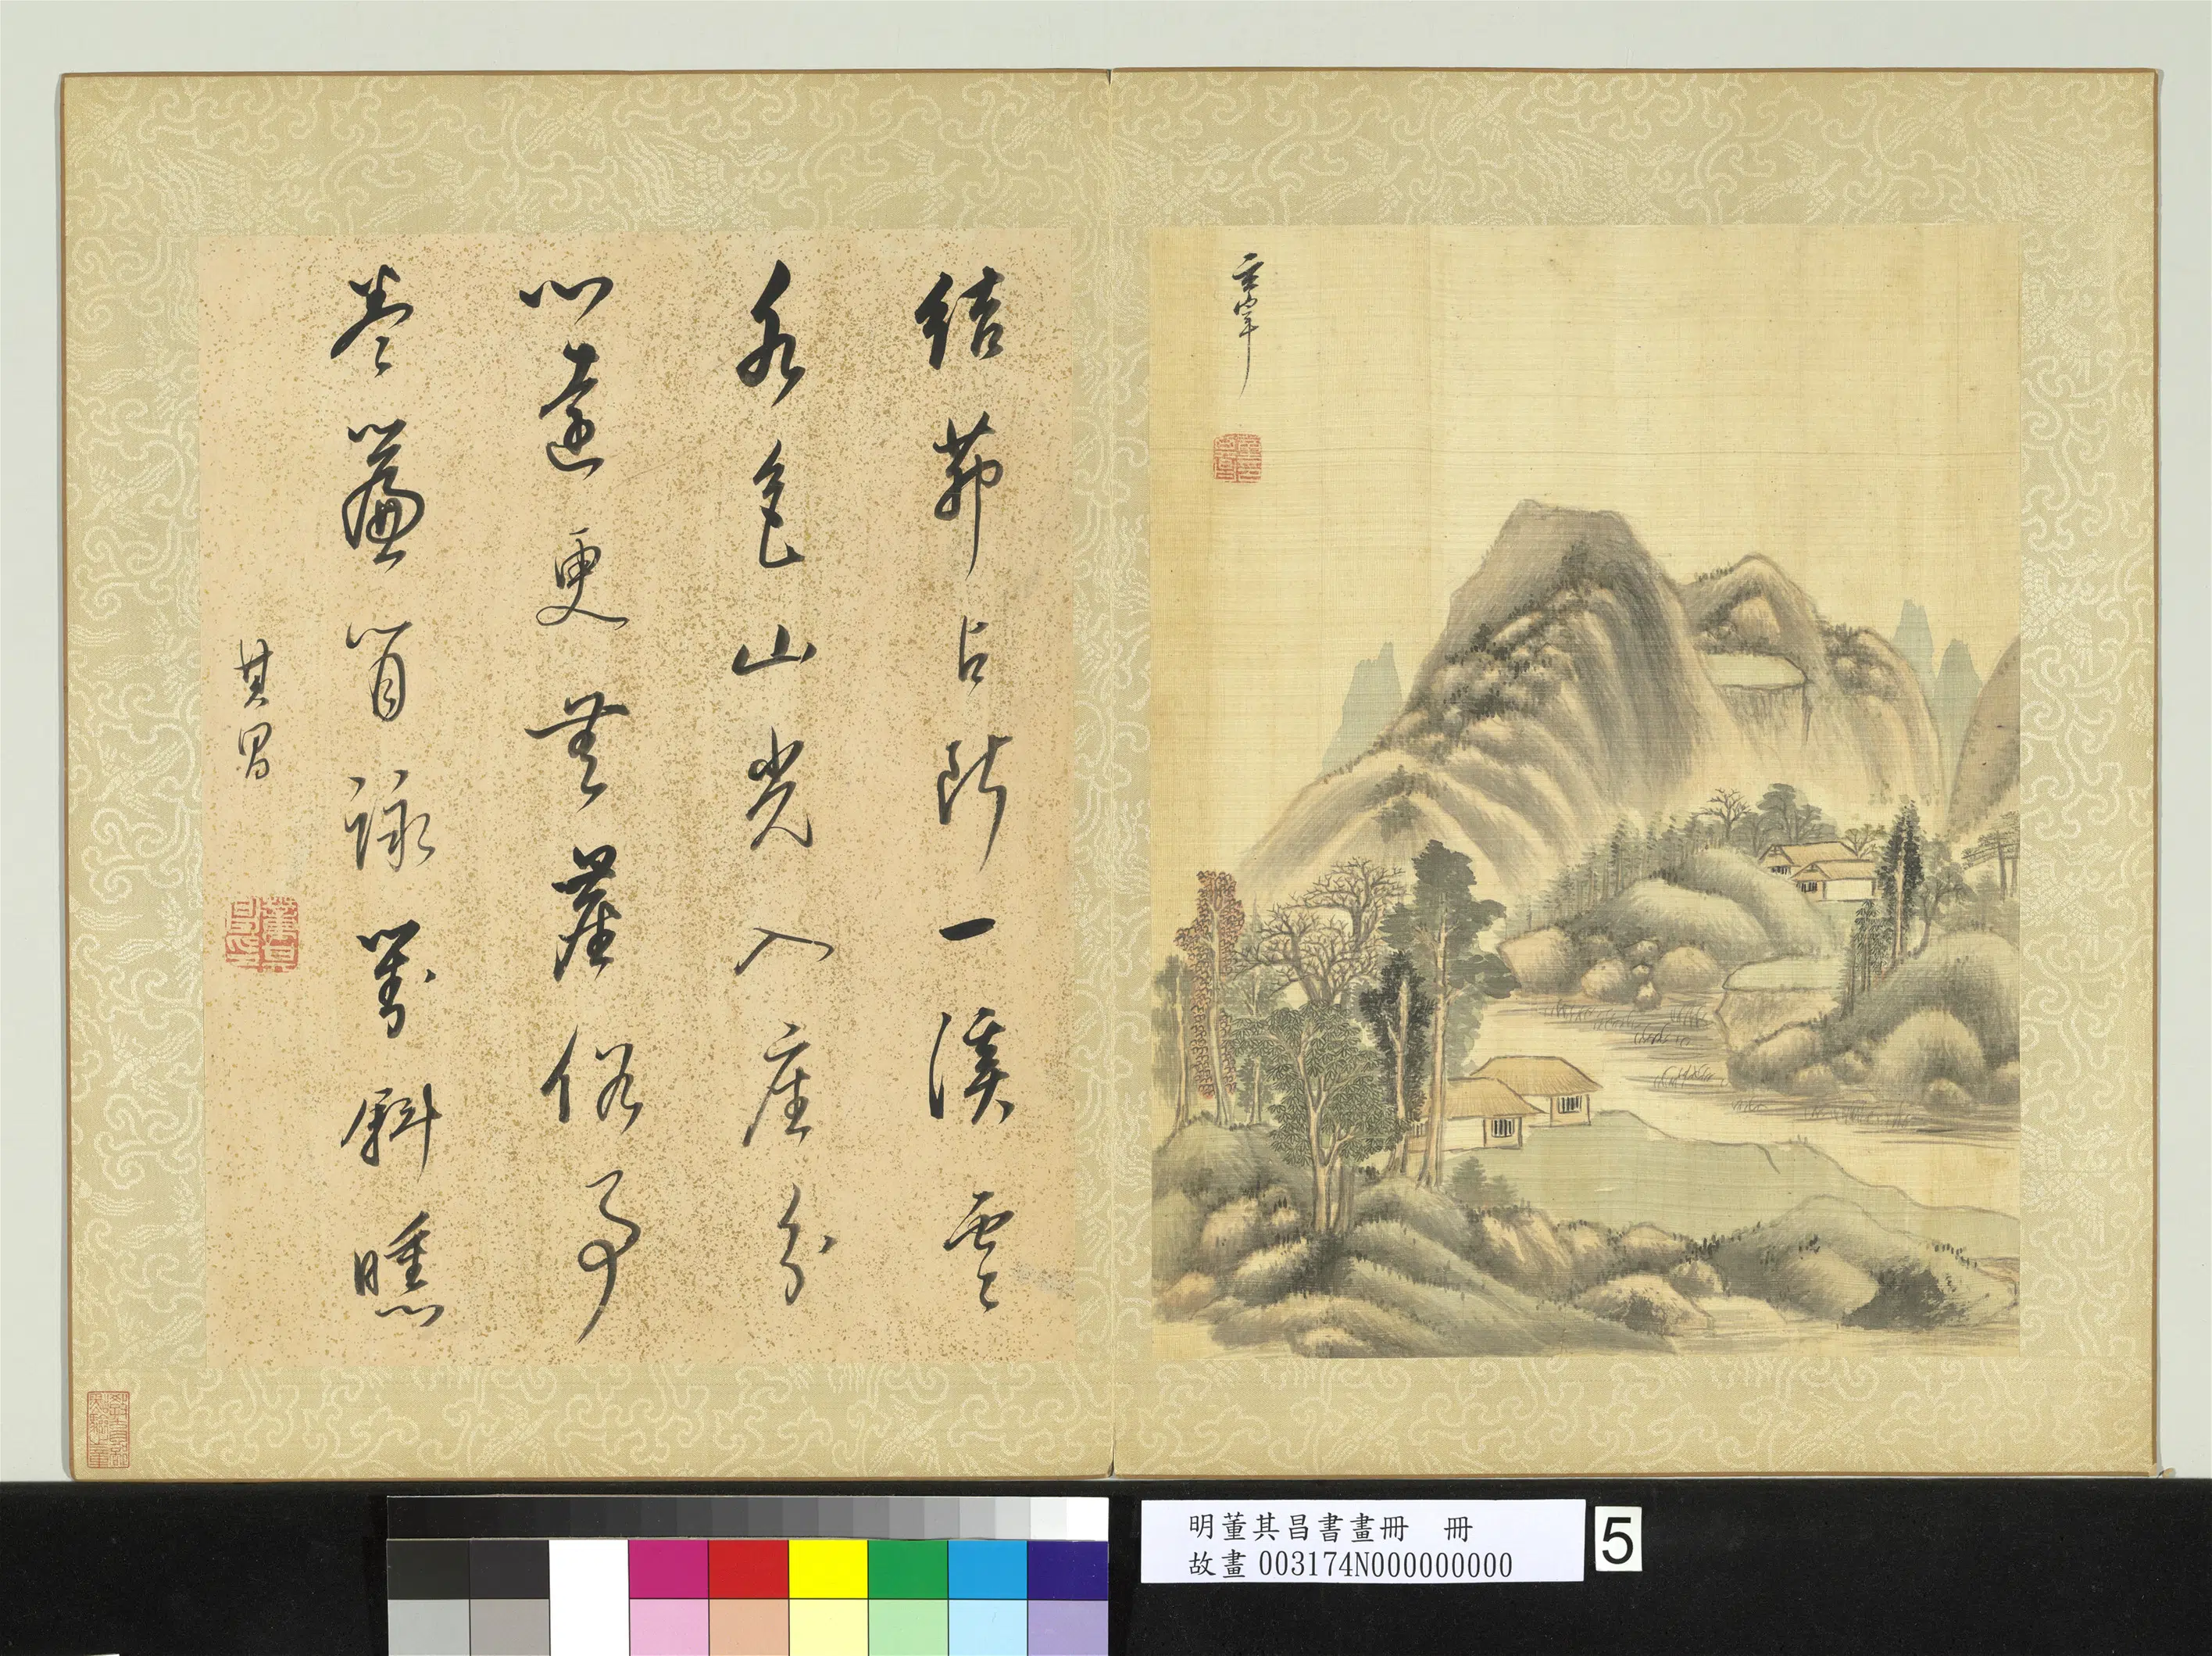 玄宰
結茆占斷一溪雲
水色山光入座分
心遠更無塵俗事
卷簾閒詠對斜曛
其昌
董其昌印
明董其昌書畫冊　冊
故畫 003174N000000000
5